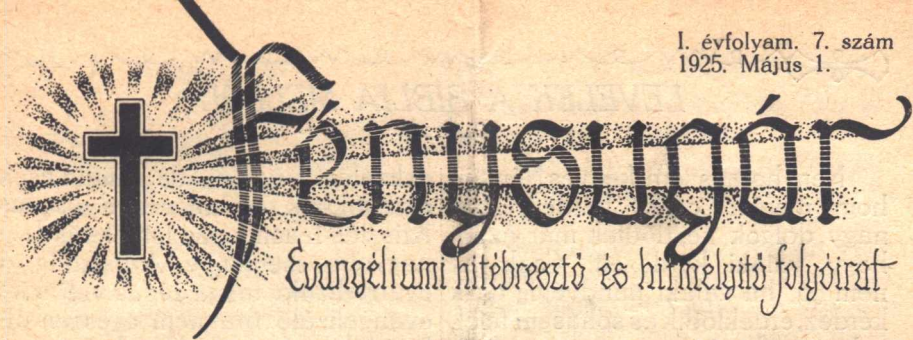 I. évfolyam. 7. szám
1925. Május 1.
Fénysugár
Evangéliumi hitébresztő és hitmélyitő folyóirat